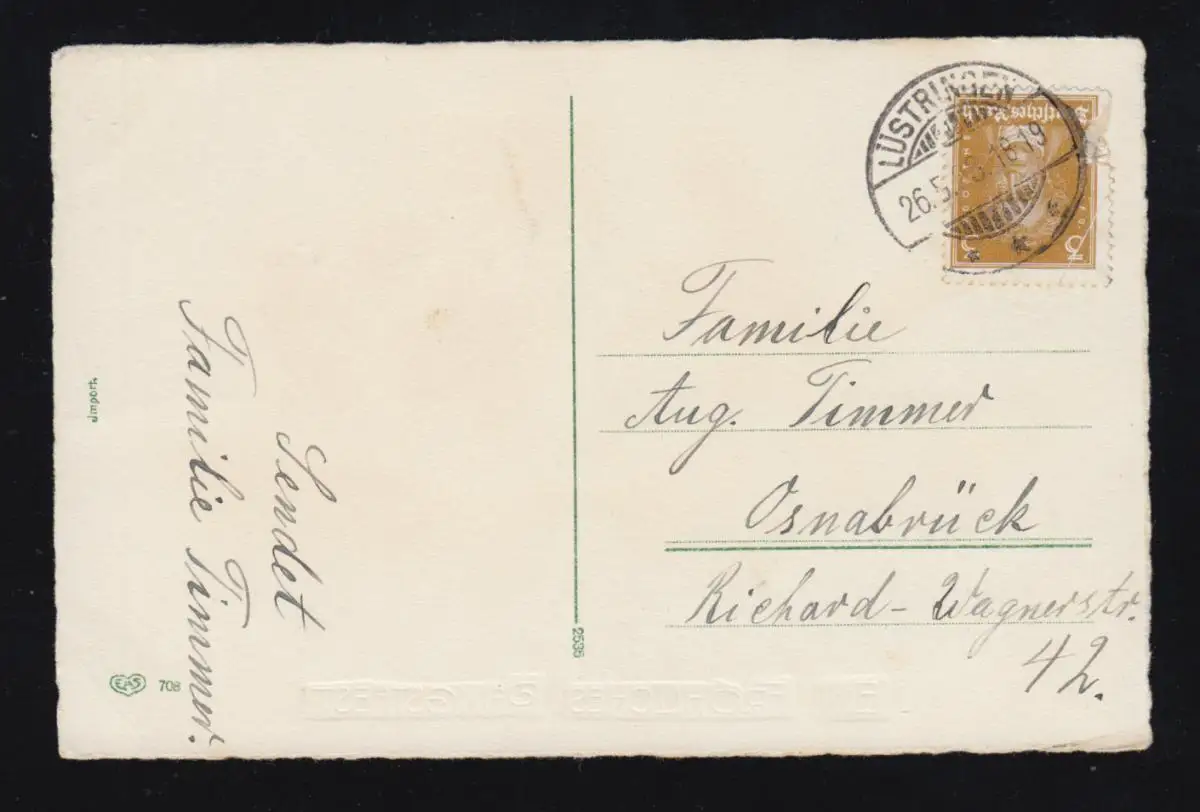 LÜSTRINGEN
26.5. 8.16-19
Deutsches Reich
3
3
Familie
Aug. Timmer
Osnabrück
Richard-Wagnerstr.
42.
Sendet
Familie Timmer.
Import.
EAS 708
2535
FRÖHLICHES PFINGSTFEST